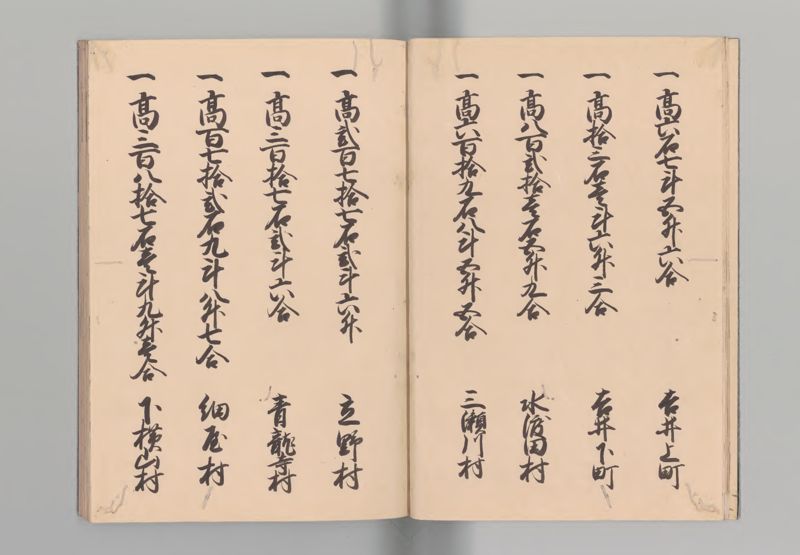 一高六石七斗五升六合　吉井上町
一高拾三石壱斗六升三合　吉井下町
一高八百弐拾壱石五升九合　水渡田村
一高六百拾九石八斗五升五合　三瀬川村
一高弐百七拾七石弐斗六升　立野村
一高三百拾七石弐斗六合　青龍寺村
一高百七拾弐石九斗八升七合　細屋村
一高三百八拾七石壱斗九升壱合　下横山村